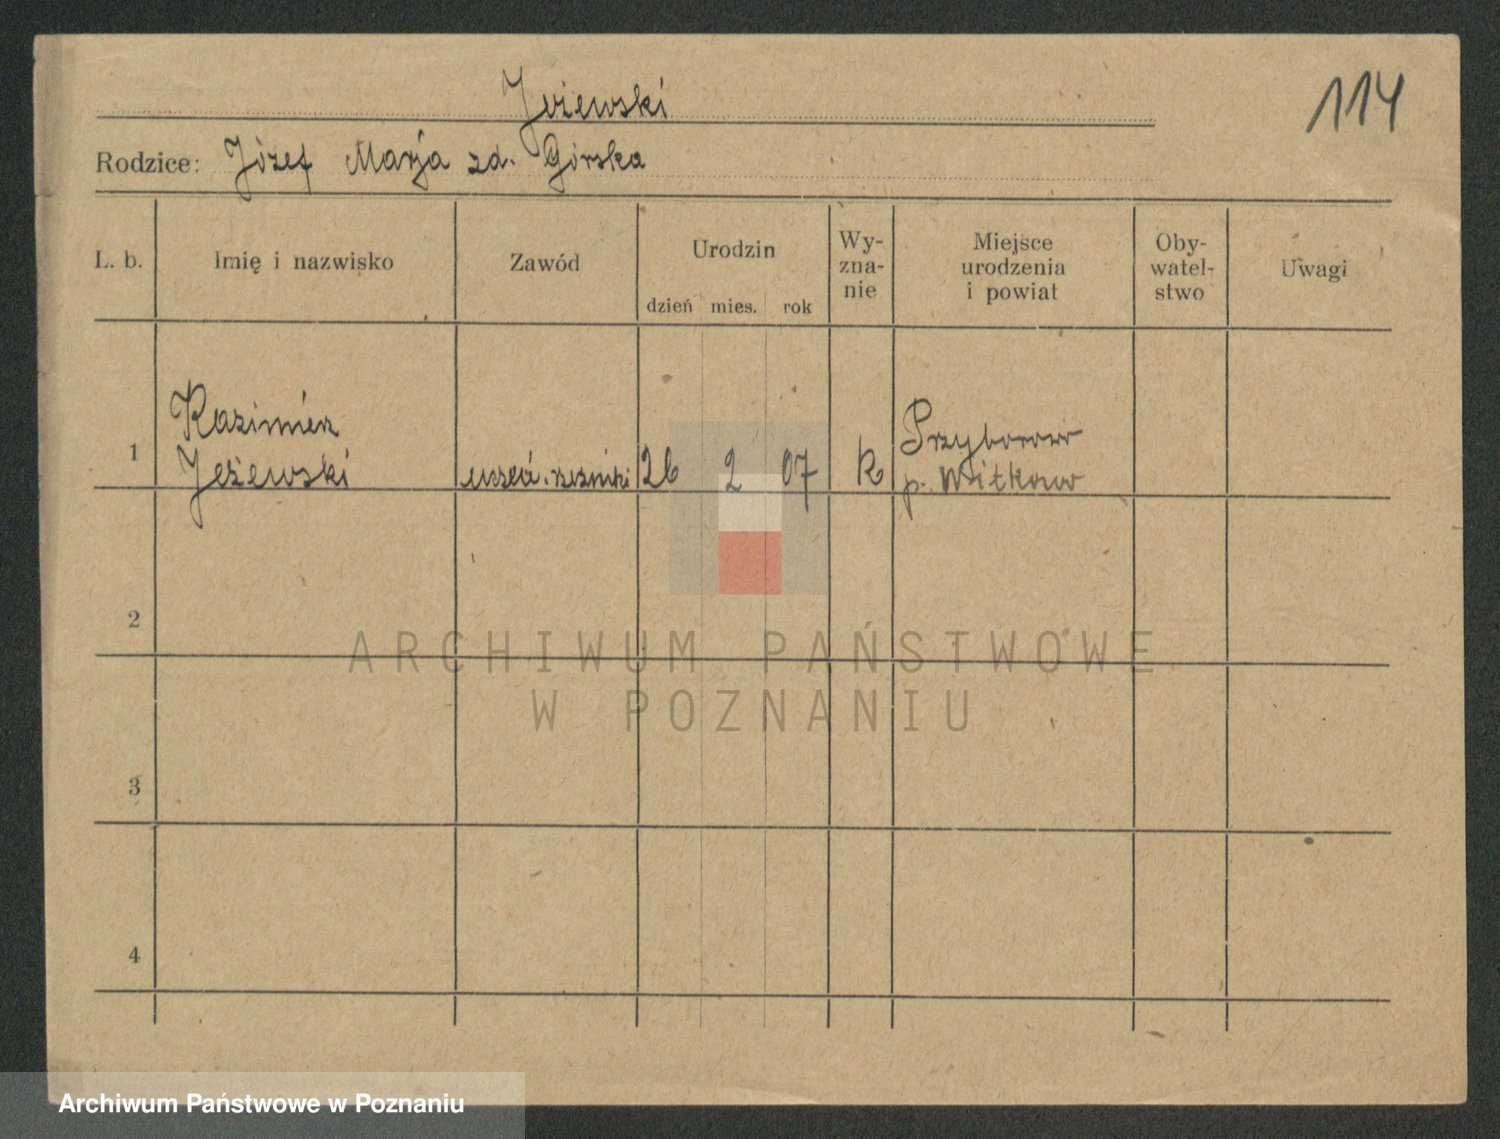 Jeżewski
114
Rodzice: Józef Marja zd. Górska
L. b.
Imię i nazwisko
Zawód
Urodzin
dzień mies. rok
Wy-
zna-
nie
Miejsce
urodzenia
i powiat
Oby-
watel-
stwo
Uwagi
1
Kazimierz
Jeżewski
uczeń. rzeźnicki
26 2 07
k
Przyborowo
p. Witkowo
2
3
4
ARCHIWUM PAŃSTWOWE
W POZNANIU
Archiwum Państwowe w Poznaniu